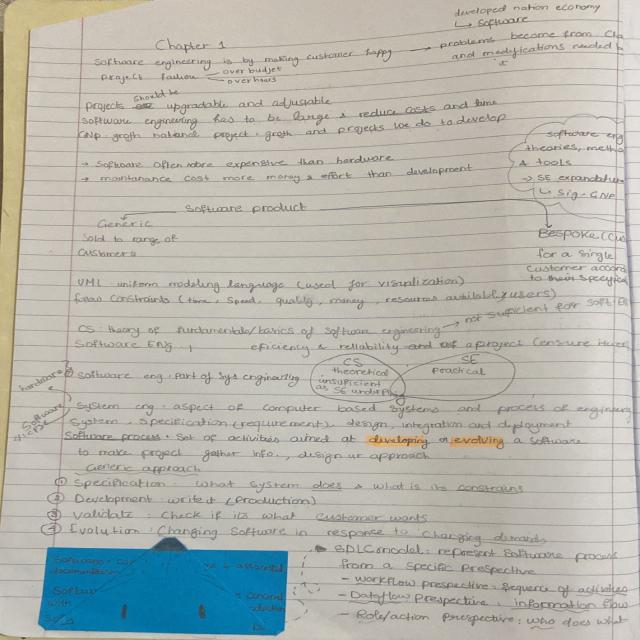 developed nation economy
↳ Software
Chapter 1
Software engineering is by making customer happy → problems become from
and modifications needed
it
project failure over budget
over hours
should be
projects upgradable and adjustable
Software engineering has to be large & reduce costs and time
GNP: groth national project: groth and projects we do to develop
→ Software often more expensive than hardware
→ maintanance cost more money & effort than development
software eng
theories, metho
& tools
→ SE expandature
↳ Sig. GNP
Software product
Generic
Sold to range of
Customers
Bespoke (Cus
for a Single
Customer accord
to their Specific
UML: uniform modeling language (used for visualization)
constraints (time, speed, quality, money, resources available, users)
CS: theory of fundamentals/basics of Software engineering → not sufficient for soft.
Software ENG, efficiency & reliability and of a project (ensure
hardware
Software eng: part of Sys enginering
CS
theoretical
insuficient
as SE
SE
Practical
Software
System eng: aspect of computer based systems and process of enginering
System, Specification (requirement), design, integration and deployment
Software process: Set of activities aimed at developing or evolving a Software
to make project gather info., design ur approach
Generic approach
① Specification: what System does & what is its constrains
② Development: write it (production)
③ Validate: check if its what customer wants
④ Evolution: Changing Software in response to changing demands
SDLC model: represent Software process
from a specific prespective
- workflow prespective: Sequence of activities
- Dataflow Prespective: information flow
- Role/action prespective: who does what